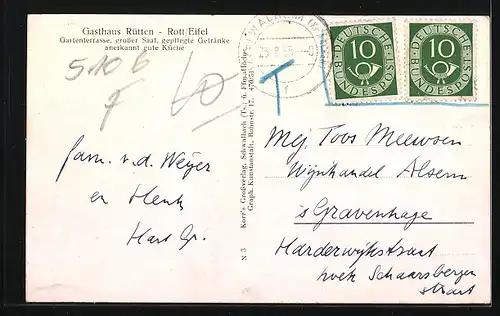 Gasthaus Rütten - Rott/Eifel
Gartenterrasse, großer Saal, gepflegte Getränke
anerkannt gute Küche
5106
60
T
DEUTSCHE BUNDESPOST
10
DEUTSCHE BUNDESPOST
10
Korr's Großverlag, Schwalbach (Ts.) ü. Ffm
Graph. Kunstanstalt, Bahnstr. 17,
N 3
fam. v. d. Weyer
en Henk
Hart Gr.
Mej. Toos Meewsen
Wijnhandel
's Gravenhage
Harderwijkstraat
hoek Schaarsbergen
straat